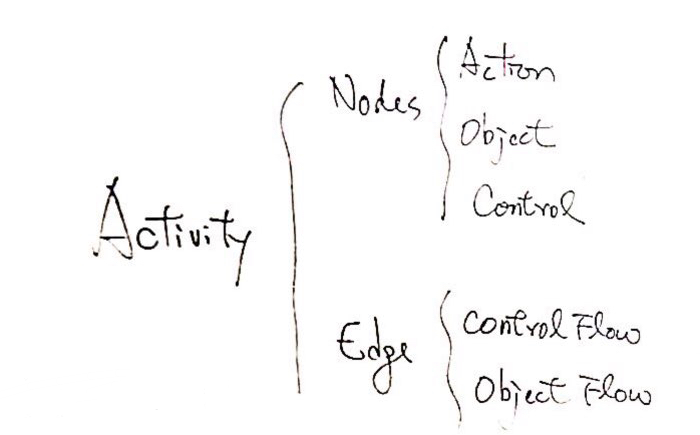 Activity
Nodes
Action
Object
Control
Edge
Control Flow
Object Flow